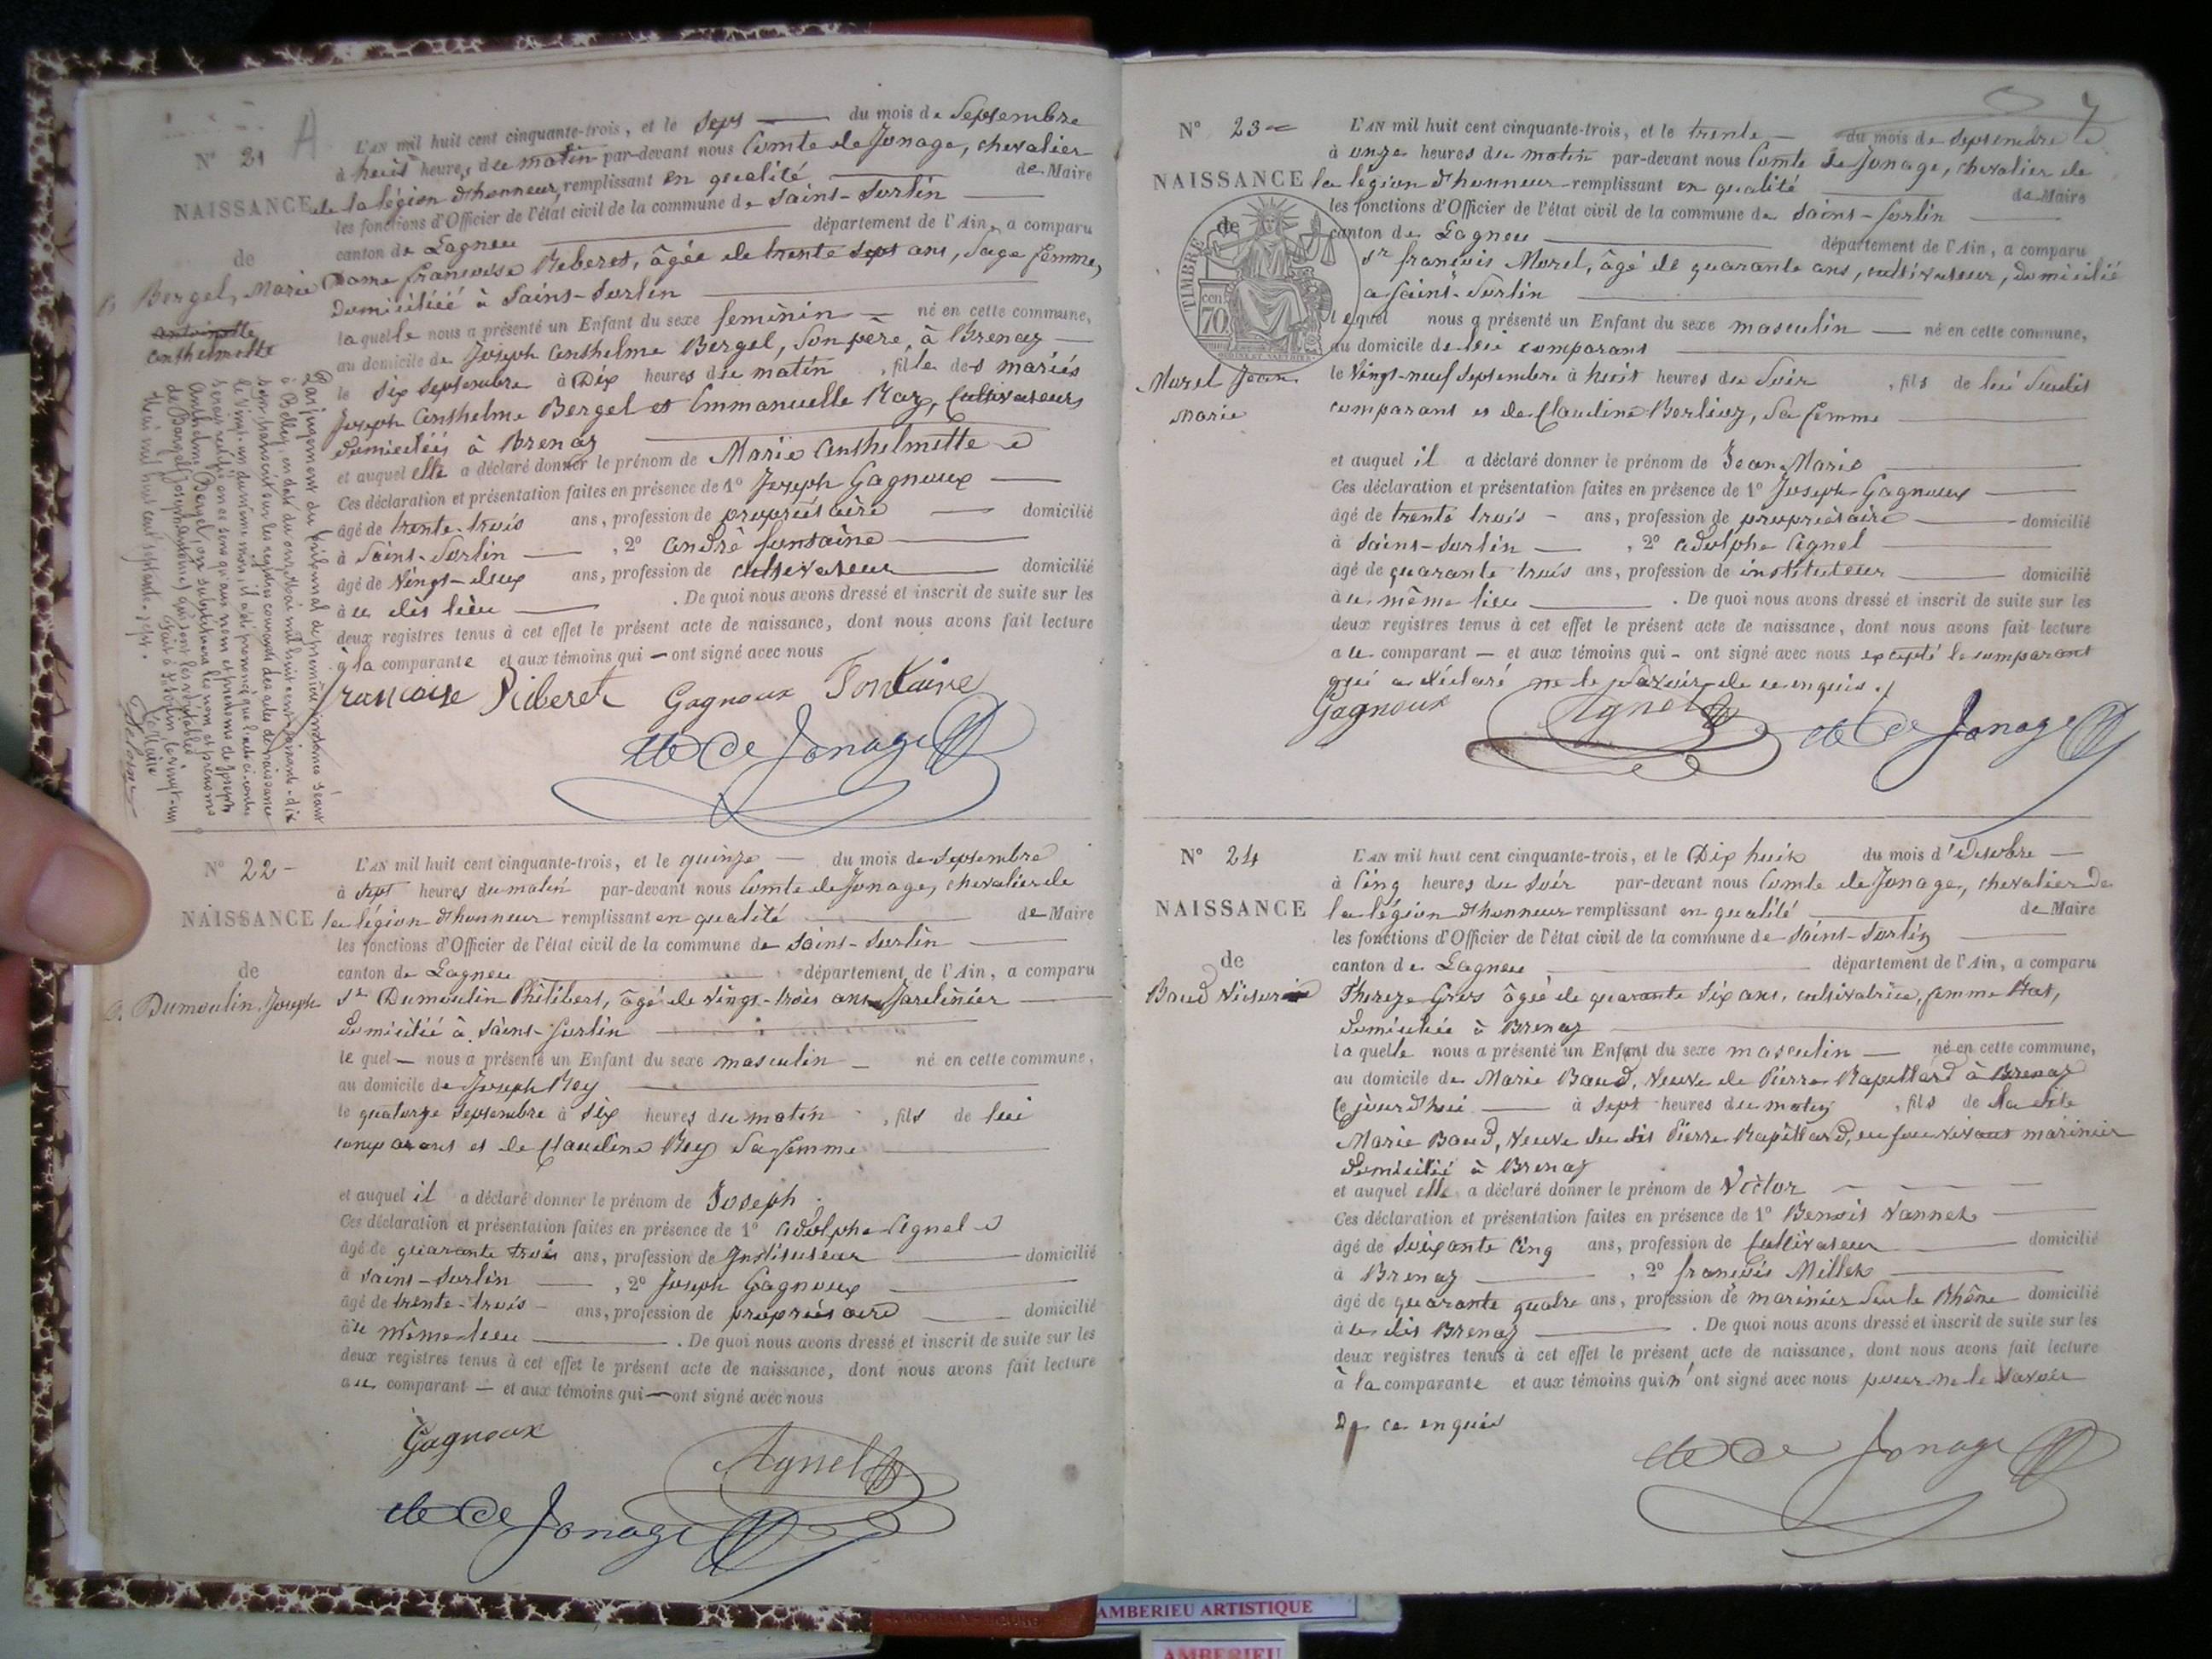 N° 21
NAISSANCE
de
Bergel, Marie
anthelmette
L'AN mil huit cent cinquante-trois, et le sept du mois de Septembre
à huit heures du matin par-devant nous Comte de Jonage, chevalier
de la légion d'honneur, remplissant en qualité de Maire
les fonctions d'Officier de l'état civil de la commune de Saint-Sorlin
canton de Lagneu département de l'Ain, a comparu
Dame françoise Riberet, âgée de trente sept ans, Sage femme,
domiciliée à Saint-Sorlin
laquelle nous a présenté un Enfant du sexe féminin né en cette commune,
au domicile de Joseph Anthelme Bergel, Son père, à Brenaz
le six Septembre à Dix heures du matin, fille des mariés
Joseph Anthelme Bergel et Emmanuelle Ray, Cultivateurs
domiciliés à Brenaz
et auquel elle a déclaré donner le prénom de Marie Anthelmette
Ces déclaration et présentation faites en présence de 1° Joseph Gagnoux
âgé de trente-trois ans, profession de propriétaire domicilié
à Saint-Sorlin, 2° André fontaine
âgé de Vingt-deux ans, profession de cultivateur domicilié
à ce dit lieu. De quoi nous avons dressé et inscrit de suite sur les
deux registres tenus à cet effet le présent acte de naissance, dont nous avons fait lecture
à la comparante et aux témoins qui ont signé avec nous
françoise Riberet Gagnoux Fontaine
Cte De Jonage
Par jugement du tribunal de première instance séant
à Belley, en date du onze Mai mil huit cent soixante-dix
N° 22
NAISSANCE
de
Dumoulin, Joseph
L'AN mil huit cent cinquante-trois, et le quinze du mois de Septembre
à sept heures du matin par-devant nous Comte de Jonage, chevalier de
la légion d'honneur remplissant en qualité de Maire
les fonctions d'Officier de l'état civil de la commune de Saint-Sorlin
canton de Lagneu département de l'Ain, a comparu
Sr Dumoulin Philibert, âgé de vingt-trois ans Jardinier
domicilié à Saint-Sorlin
lequel nous a présenté un Enfant du sexe masculin né en cette commune,
au domicile de Joseph Rey
le quatorze Septembre à six heures du matin, fils de lui
comparant et de Claudine Rey Sa femme
et auquel il a déclaré donner le prénom de Joseph
Ces déclaration et présentation faites en présence de 1° Adolphe Agnel
âgé de quarante trois ans, profession de Instituteur domicilié
à Saint-Sorlin, 2° Joseph Gagnoux
âgé de trente-trois ans, profession de propriétaire domicilié
au même lieu. De quoi nous avons dressé et inscrit de suite sur les
deux registres tenus à cet effet le présent acte de naissance, dont nous avons fait lecture
au comparant et aux témoins qui ont signé avec nous
Gagnoux
Agnel
Cte De Jonage
7
N° 23
NAISSANCE
de
TIMBRE
70 cen
Morel Jean
Marie
L'AN mil huit cent cinquante-trois, et le trente du mois de Septembre
à onze heures du matin par-devant nous Comte de Jonage, chevalier de
la légion d'honneur remplissant en qualité de Maire
les fonctions d'Officier de l'état civil de la commune de Saint-Sorlin
canton de Lagneu département de l'Ain, a comparu
Sr françois Morel, âgé de quarante ans, cultivateur, domicilié
à Saint-Sorlin
lequel nous a présenté un Enfant du sexe masculin né en cette commune,
au domicile de lui comparant
le Vingt-neuf Septembre à huit heures du Soir, fils de lui Sudit
comparant et de Claudine Berlioz, Sa femme
et auquel il a déclaré donner le prénom de Jean Marie
Ces déclaration et présentation faites en présence de 1° Joseph Gagnoux
âgé de trente trois ans, profession de propriétaire domicilié
à Saint-Sorlin, 2° Adolphe Agnel
âgé de quarante trois ans, profession de instituteur domicilié
au même lieu. De quoi nous avons dressé et inscrit de suite sur les
deux registres tenus à cet effet le présent acte de naissance, dont nous avons fait lecture
au comparant et aux témoins qui ont signé avec nous excepté le comparant
qui a déclaré ne le Savoir de ce enquis.
Gagnoux Agnel Cte De Jonage
N° 24
NAISSANCE
de
Baud Victor
L'AN mil huit cent cinquante-trois, et le Dix huit du mois d'Octobre
à Cinq heures du Soir par-devant nous Comte de Jonage, chevalier De
la légion d'honneur remplissant en qualité de Maire
les fonctions d'Officier de l'état civil de la commune de Saint-Sorlin
canton de Lagneu département de l'Ain, a comparu
Thereze Gros âgée de quarante Six ans, cultivatrice, femme
domiciliée à Brenaz
laquelle nous a présenté un Enfant du sexe masculin né en cette commune,
au domicile de Marie Baud, Veuve de Pierre Rapillard à Brenaz
Cejourd'hui à Sept heures du matin, fils de la dite
Marie Baud, Veuve du dit Pierre Rapillard, en son vivant marinier
domicilié à Brenaz
et auquel elle a déclaré donner le prénom de Victor
Ces déclaration et présentation faites en présence de 1° Benoit Vannet
âgé de Soixante Cinq ans, profession de Cultivateur domicilié
à Brenaz, 2° françois Millet
âgé de quarante quatre ans, profession de marinier Sur le Rhône domicilié
à ce dit Brenaz. De quoi nous avons dressé et inscrit de suite sur les
deux registres tenus à cet effet le présent acte de naissance, dont nous avons fait lecture
à la comparante et aux témoins qui n'ont signé avec nous pour ne le Savoir
De ce enquis
Cte De Jonage
AMBERIEU ARTISTIQUE
AMBERIEU